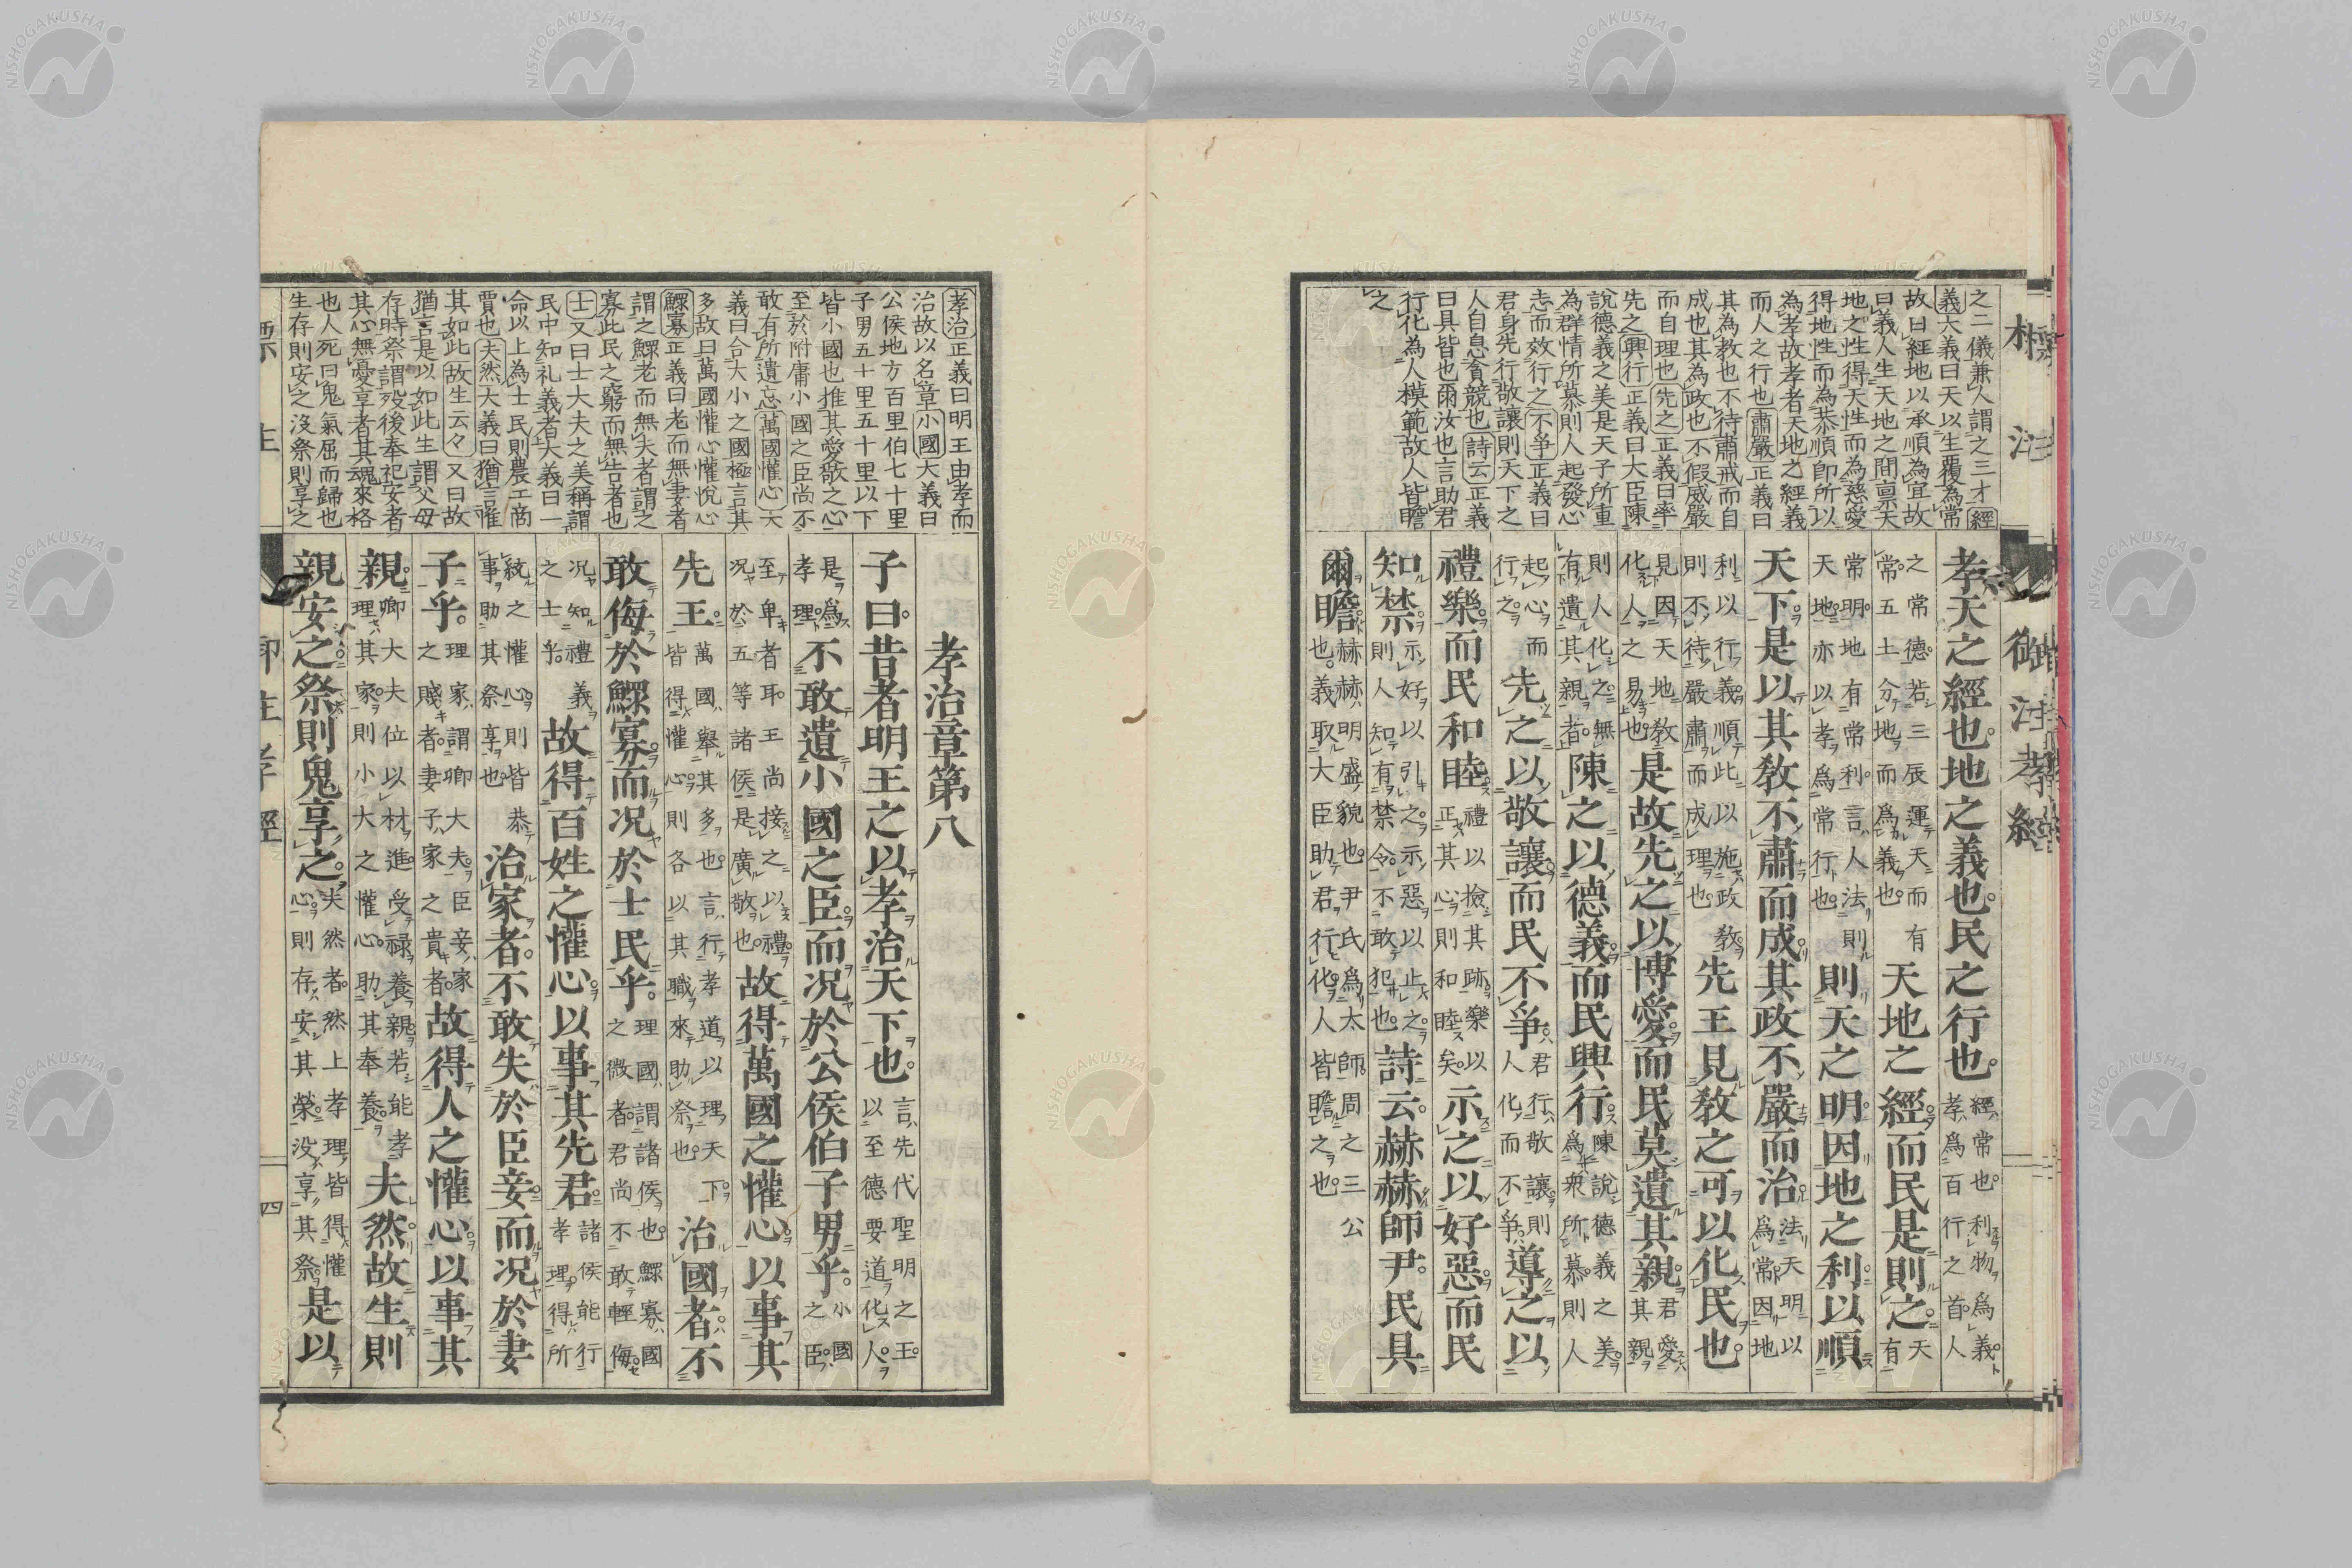 標注御注孝經
之二儀兼人謂之三才經
義大義曰天以生覆為常
故曰經地以承順為宜故
曰義人生天地之間禀天
地之性得天性而為慈愛
得地性而為恭順即所以
為孝故孝者天地之經義
而人之行也肅嚴正義曰
其為教也不待肅戒而自
成也其為政也不假威嚴
而自理也先之正義曰率
先之興行正義曰大臣陳
說德義之美是天子所重
為群情所慕則人起發心
志而效行之不爭正義曰
君身先行敬讓則天下之
人自息貪競也詩云正義
曰具皆也爾汝也言助君
行化為人模範故人皆瞻
之
孝天之經也地之義也民之行也經常也利物爲義孝爲百行之首人
之常德若三辰運天而有常五土分地而爲義也天地之經而民是則之天有
常明地有常利言人法則天地亦以孝爲常行也則天之明因地之利以順
天下是以其敎不肅而成其政不嚴而治法天明以爲常因地
利以行義順此以施政敎則不待嚴肅而成理也先王見敎之可以化民也
見因天地敎化人之易也是故先之以博愛而民莫遺其親君愛其親
則人化之無有遺其親者陳之以德義而民興行陳說德義之美爲衆所慕則人
起心而行之先之以敬讓而民不爭君行敬讓則人化而不爭導之以
禮樂而民和睦禮以撿其跡樂以正其心則和睦矣示之以好惡而民
知禁示好以引之示惡以止之則人知有禁令不敢犯也詩云赫赫師尹民具
爾瞻赫赫明盛貌也尹氏爲太師周之三公也義取大臣助君行化人皆瞻之也
孝治正義曰明王由孝而
治故以名章小國大義曰
公侯地方百里伯七十里
子男五十里五十里以下
至於附庸小國之臣尚不
皆小國也推其愛敬之心
敢有所遺忘萬國懽心大
義曰合大小之國極言其
多故曰萬國懽心懽悅心
鰥寡正義曰老而無妻者
謂之鰥老而無夫者謂之
寡此民之窮而無告者也
士又曰士大夫之美稱謂
民中知礼義者大義曰一
命以上為士民則農工商
賈也夫然大義曰猶言惟
其如此故生云々又曰故
猶言是以如此生謂父母
存時祭謂殁後奉祀安者
其心無憂享者其魂來格
也人死曰鬼氣屈而歸也
生存則安之沒祭則享之
孝治章第八
子曰昔者明王之以孝治天下也言先代聖明之王以至德要道化人
是爲孝理不敢遺小國之臣而况於公侯伯子男乎小國之臣
至卑者耳王尚接之以禮况於五等諸侯是廣敬也故得萬國之懽心以事其
先王萬國舉其多也言行孝道以理天下皆得懽心則各以其職來助祭也治國者不
敢侮於鰥寡而况於士民乎理國謂諸侯也鰥寡國之微者君尚不敢輕侮
况知禮義之士乎故得百姓之懽心以事其先君諸侯能行孝理得所
統之懽心則皆恭事助其祭享也治家者不敢失於臣妾而况於妻
子乎理家謂卿大夫臣妾家之賤者妻子家之貴者故得人之懽心以事其
親卿大夫位以材進受祿養親若能孝理其家則小大之懽心助其奉養夫然故生則
親安之祭則鬼享之夫然者然上孝理皆得懽心則存安其榮沒享其祭是以
標注御注孝經
四